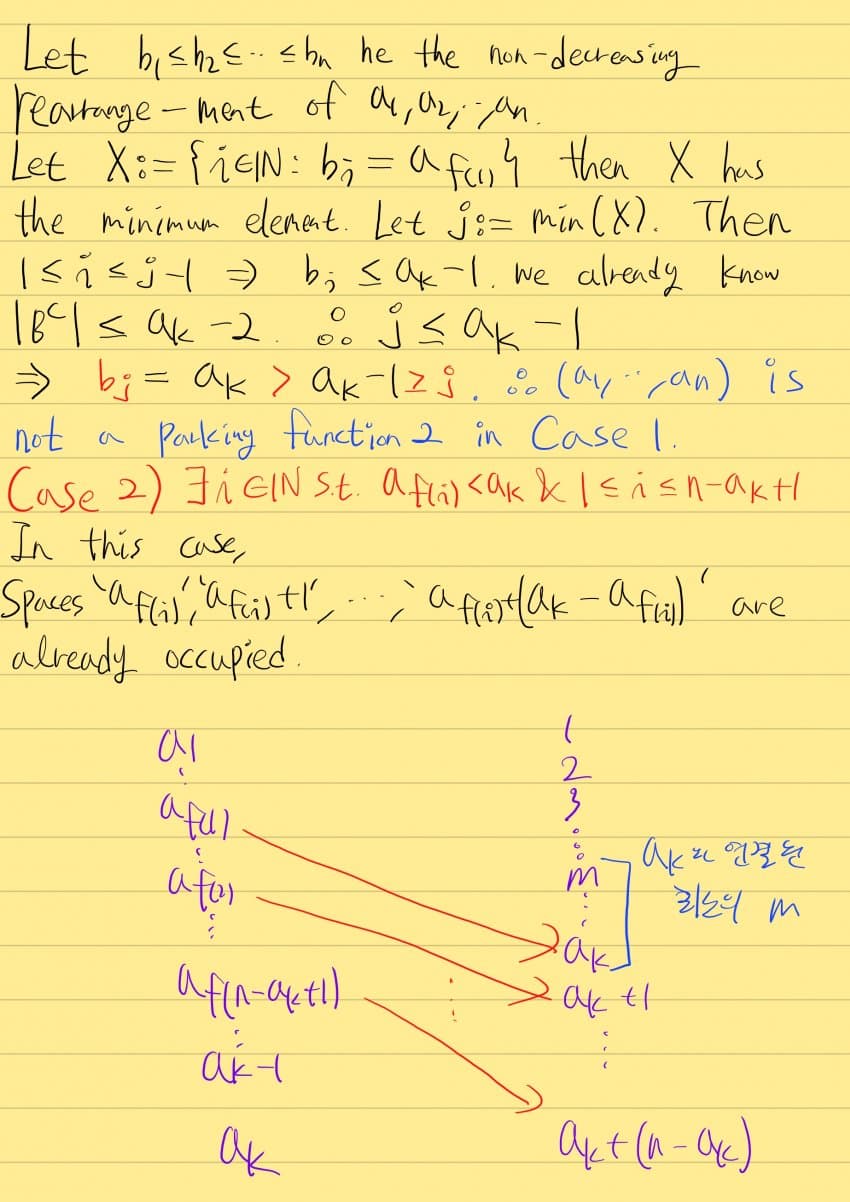 Let b₁≤b₂≤‥≤bₙ be the non-decreasing
rearrange-ment of a₁,a₂,‥,aₙ.
Let X:={i∈ℕ: bᵢ = a_f(1)} then X has
the minimum element. Let j:= min(X). Then
1≤i≤j-1 ⇒ bᵢ ≤ aₖ-1. We already know
|Bᶜ| ≤ aₖ-2. ∴ j ≤ aₖ-1
⇒ bⱼ = aₖ > aₖ-1 ≥ j. ∴ (a₁,‥,aₙ) is
not a parking function 2 in Case 1.
Case 2) ∃i∈ℕ s.t. a_f(i) < aₖ & 1≤i≤n-aₖ+1
In this case,
Spaces 'a_f(i)', 'a_f(i)+1', ⋯, 'a_f(i)+(aₖ-a_f(i))' are
already occupied.
a₁
⋮
a_f(1)
⋮
a_f(2)
⋮
a_f(n-aₖ+1)
⋮
aₖ-1
aₖ
1
2
3
⋮
m
⋮
aₖ
aₖ+1
⋮
aₖ+(n-aₖ)
aₖ와 연결된
최소의 m